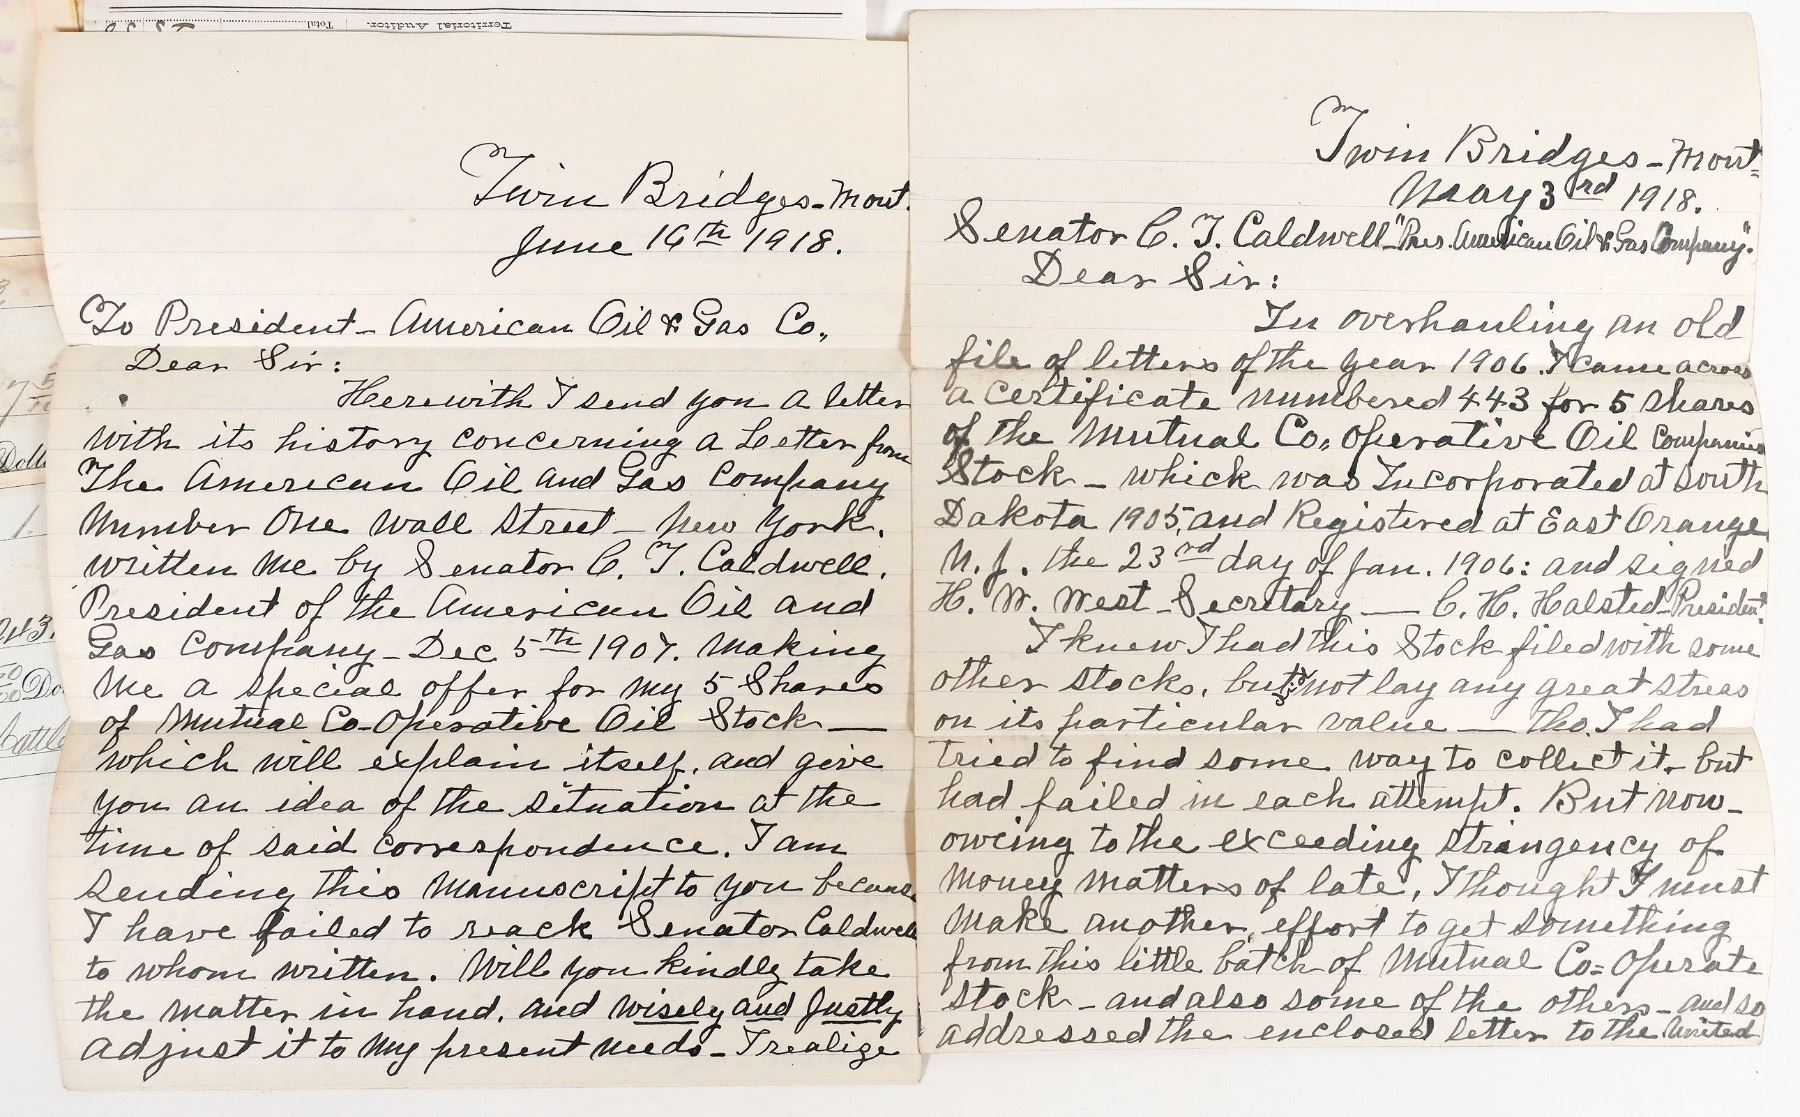 Territorial Auditor.
Total
Twin Bridges - Mont.
June 16th 1918.
To President - American Oil & Gas Co.,
Dear Sir:
Herewith I send you a letter
with its history concerning a Letter from
The American Oil and Gas Company
Number One Wall Street - New York.
written me by Senator C. T. Caldwell.
President of the American Oil and
Gas Company - Dec. 5th 1907. Making
me a special offer for my 5 Shares
of Mutual Co-Operative Oil Stock —
which will explain itself, and give
you an idea of the situation at the
time of said correspondence. I am
sending this Manuscript to you because
I have failed to reach Senator Caldwell
to whom written. Will you kindly take
the matter in hand, and wisely and Justly
adjust it to my present needs - I realize
Twin Bridges - Mont=
May 3rd 1918.
Senator C. T. Caldwell "Pres. American Oil & Gas Company".
Dear Sir:
In overhauling an old
file of letters of the year 1906. I came across
a certificate numbered 443 for 5 shares
of the Mutual Co, Operative Oil Companies
Stock - which was Incorporated at South
Dakota 1905, and Registered at East Orange
N.J. the 23rd day of Jan. 1906: and signed
H. W. West - Secretary — C. H. Halsted - President.
I knew I had this Stock filed with some
other stocks, but not lay any great stress
on its particular value — tho. I had
tried to find some way to collect it - but
had failed in each attempt. But now -
owing to the exceeding stringency of
money matters of late, I thought I must
make another, effort to get something
from this little batch of Mutual Co=Operate
Stock - and also some of the others - and so
addressed the enclosed letter to the United